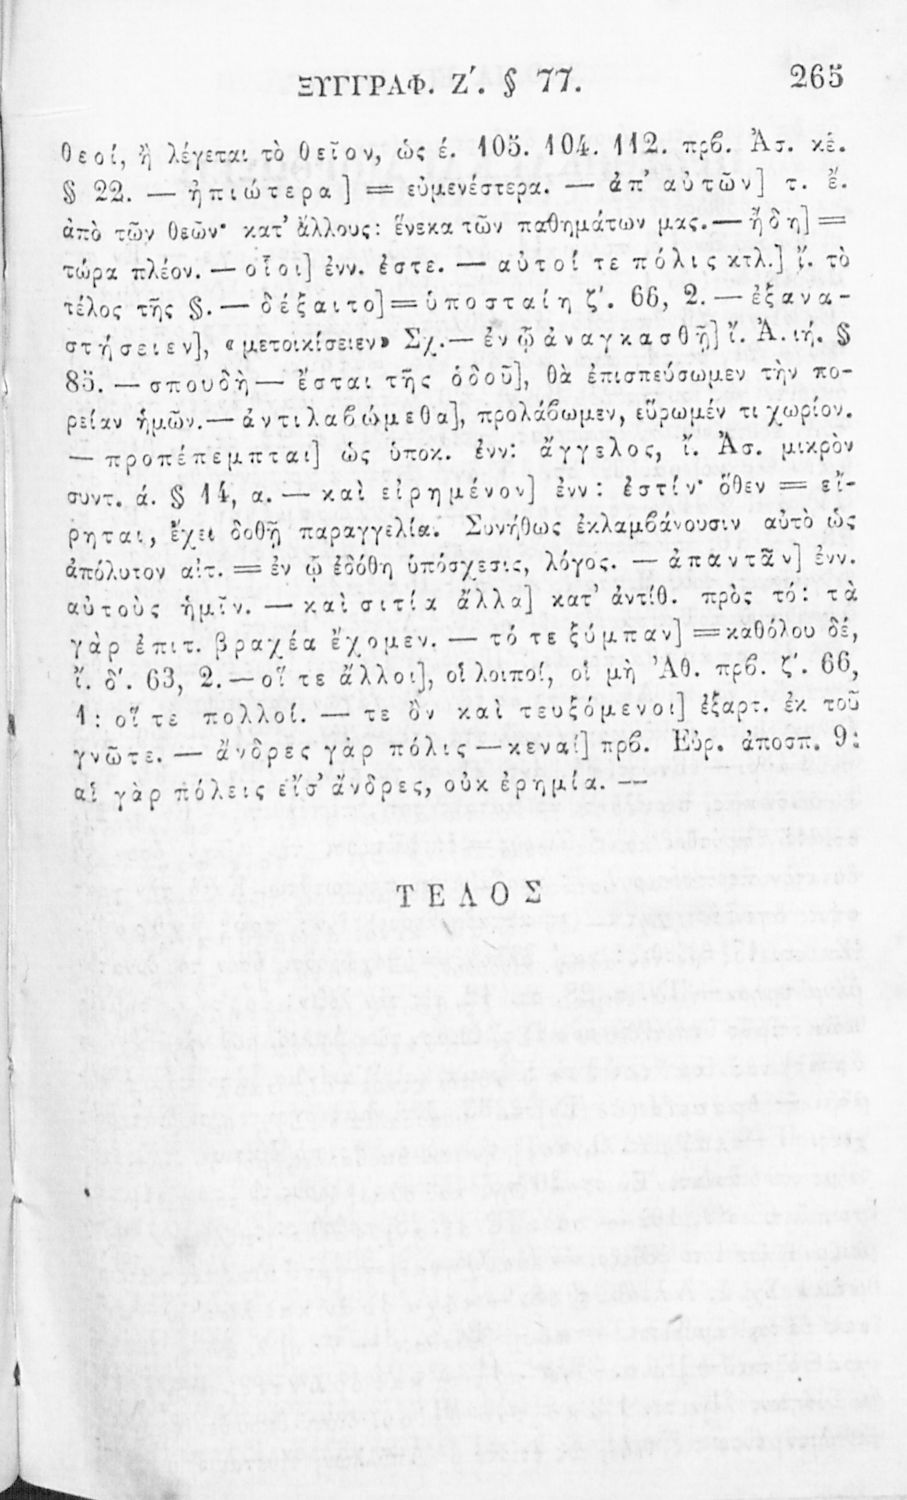 ΞΥΓΓΡΑΦ. Ζ΄. § 77. 265
θεοί, ἢ λέγεται τὸ θεῖον, ὡς έ. 105. 104. 112. πρβ. Ἀσ. κέ.
§ 22. — ἠπιώτερα] = εὐμενέστερα. — ἀπ' αὐτῶν] τ. ἔ.
ἀπὸ τῶν θεῶν· κατ' ἄλλους: ἕνεκα τῶν παθημάτων μας. — ἤδη] =
τώρα πλέον. — οἷοι] ἐνν. ἐστε. — αὐτοί τε πόλις κτλ.] ἴ. τὸ
τέλος τῆς §. — δέξαιτο] = ὑποσταίη ζ΄. 66, 2. — ἐξανα-
στήσειεν], «μετοικίσειεν» Σχ. — ἐν ᾧ ἀναγκασθῇ] ἴ. Ἀ. ιή. §
85. — σπουδὴ — ἔσται τῆς ὁδοῦ], θὰ ἐπισπεύσωμεν τὴν πο-
ρείαν ἡμῶν. — ἀντιλαβώμεθα], προλάβωμεν, εὕρωμέν τι χωρίον.
— προπέπεμπται] ὡς ὑποκ. ἐνν: ἄγγελος, ἴ. Ἀσ. μικρὸν
συντ. ά. § 14, α. — καὶ εἰρημένον] ἐνν: ἐστίν· ὅθεν = εἴ-
ρηται, ἔχει δοθῆ παραγγελία. Συνήθως ἐκλαμβάνουσιν αὐτὸ ὡς
ἀπόλυτον αἰτ. = ἐν ᾧ ἐδόθη ὑπόσχεσις, λόγος. — ἀπαντᾶν] ἐνν.
αὐτοὺς ἡμῖν. — καὶ σιτία ἄλλα] κατ' ἀντίθ. πρὸς τό: τὰ
γὰρ ἐπιτ. βραχέα ἔχομεν. — τό τε ξύμπαν] = καθόλου δέ,
ἴ. δ΄. 63, 2. — οἵ τε ἄλλοι], οἱ λοιποί, οἱ μὴ Ἀθ. πρβ. ζ΄. 66,
1: οἵ τε πολλοί. — τε ὃν καὶ τευξόμενοι] ἐξαρτ. ἐκ τοῦ
γνῶτε. — ἄνδρες γὰρ πόλις — κεναί] πρβ. Εὐρ. ἀποσπ. 9:
αἱ γὰρ πόλεις εἴσ' ἄνδρες, οὐκ ἐρημία. —
ΤΕΛΟΣ